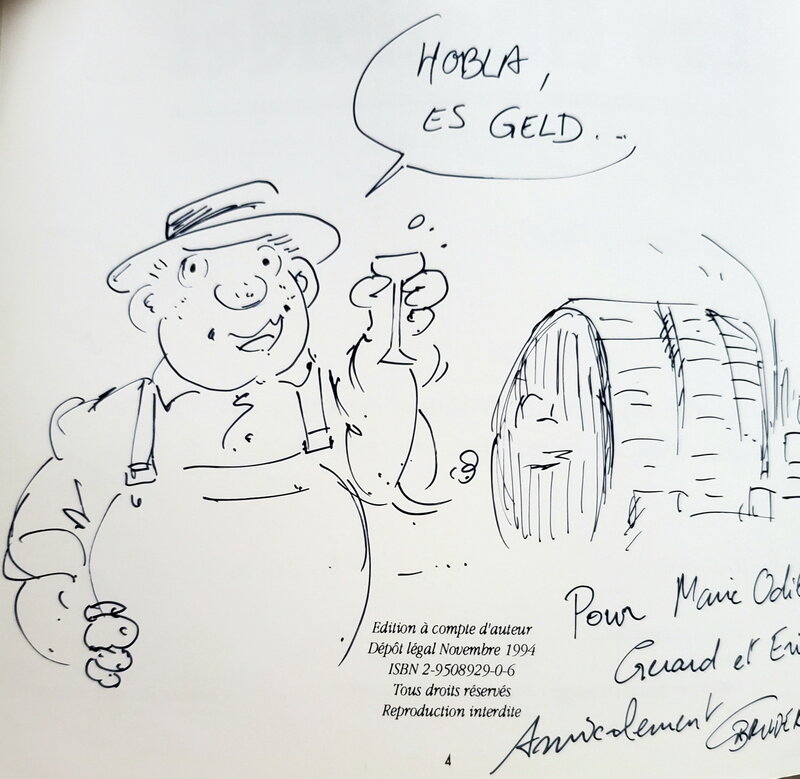 HOBLA,
ES GELD...
Edition à compte d'auteur
Dépôt légal Novembre 1994
ISBN 2-9508929-0-6
Tous droits réservés
Reproduction interdite
Pour Marie Odi
Gerard et Eri
Amicalement
4